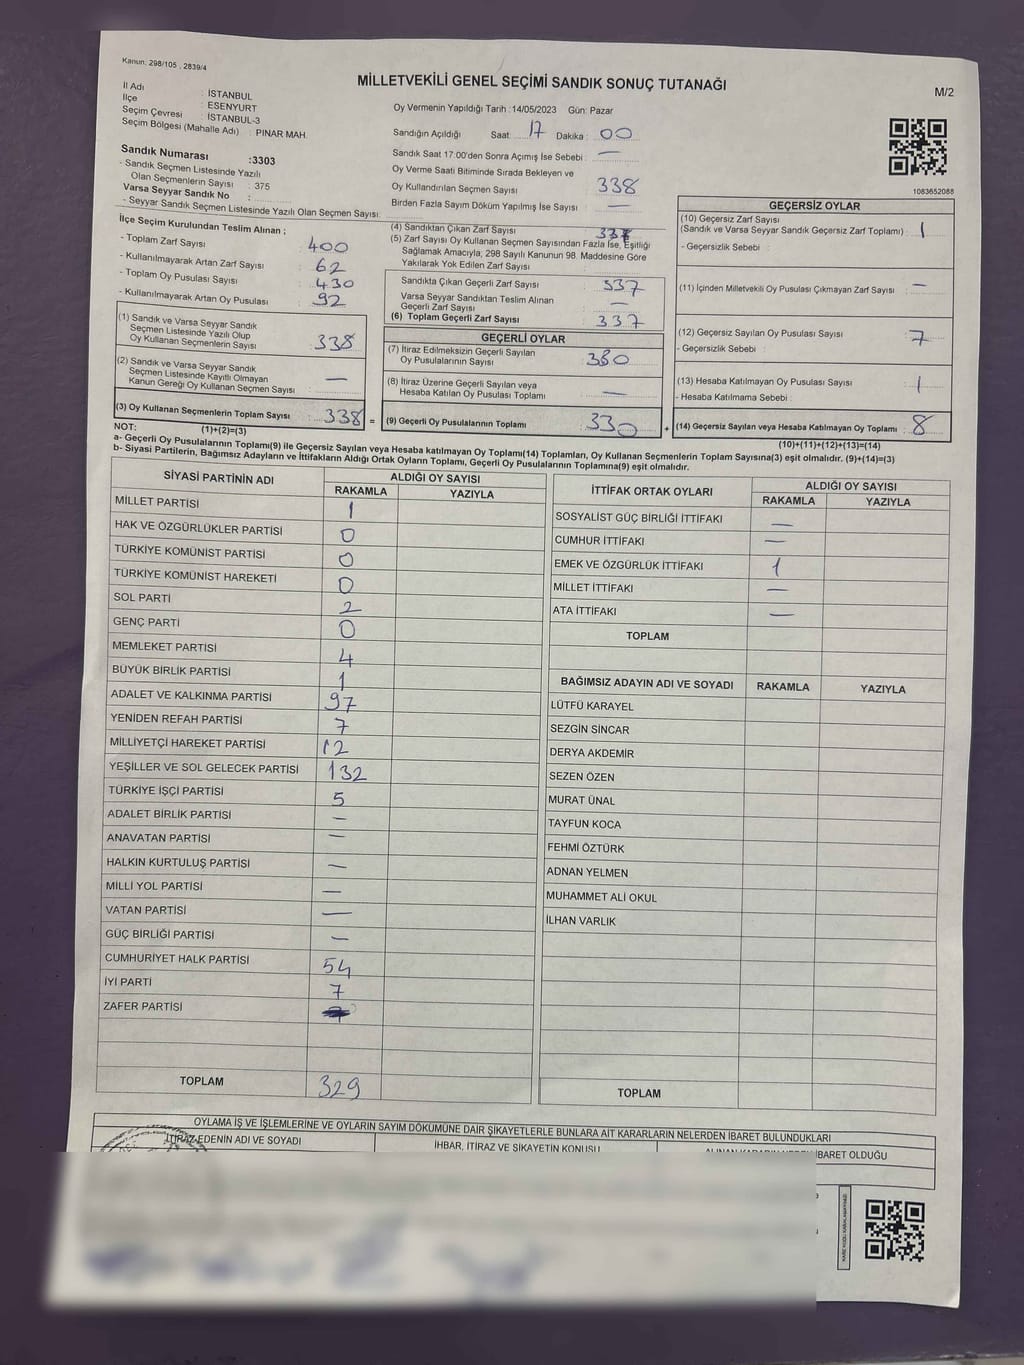 Kanun: 298/105 , 2839/4
MİLLETVEKİLİ GENEL SEÇİMİ SANDIK SONUÇ TUTANAĞI
M/2
İl Adı : İSTANBUL
İlçe : ESENYURT
Seçim Çevresi : İSTANBUL-3
Seçim Bölgesi (Mahalle Adı) : PINAR MAH.
Oy Vermenin Yapıldığı Tarih :14/05/2023 Gün: Pazar
Sandığın Açıldığı Saat 17 Dakika : 00
Sandık Saat 17:00'den Sonra Açımış İse Sebebi : —
Oy Verme Saati Bitiminde Sırada Bekleyen ve
Oy Kullandırılan Seçmen Sayısı : 338
Birden Fazla Sayım Döküm Yapılmış İse Sayısı : —
1083652088
Sandık Numarası :3303
- Sandık Seçmen Listesinde Yazılı
Olan Seçmenlerin Sayısı : 375
Varsa Seyyar Sandık No :
- Seyyar Sandık Seçmen Listesinde Yazılı Olan Seçmen Sayısı:
İlçe Seçim Kurulundan Teslim Alınan ;
- Toplam Zarf Sayısı : 400
- Kullanılmayarak Artan Zarf Sayısı : 62
- Toplam Oy Pusulası Sayısı : 430
- Kullanılmayarak Artan Oy Pusulası : 92
(1) Sandık ve Varsa Seyyar Sandık
Seçmen Listesinde Yazılı Olup
Oy Kullanan Seçmenlerin Sayısı : 338
(2) Sandık ve Varsa Seyyar Sandık
Seçmen Listesinde Kayıtlı Olmayan
Kanun Gereği Oy Kullanan Seçmen Sayısı : —
(3) Oy Kullanan Seçmenlerin Toplam Sayısı : 338 =
(1)+(2)=(3)
(4) Sandıktan Çıkan Zarf Sayısı : 337
(5) Zarf Sayısı Oy Kullanan Seçmen Sayısından Fazla İse, Eşitliği
Sağlamak Amacıyla, 298 Sayılı Kanunun 98. Maddesine Göre
Yakılarak Yok Edilen Zarf Sayısı :
Sandıkta Çıkan Geçerli Zarf Sayısı : 337
Varsa Seyyar Sandıktan Teslim Alınan
Geçerli Zarf Sayısı : —
(6) Toplam Geçerli Zarf Sayısı : 337
GEÇERLİ OYLAR
(7) İtiraz Edilmeksizin Geçerli Sayılan
Oy Pusulalarının Sayısı : 330
(8) İtiraz Üzerine Geçerli Sayılan veya
Hesaba Katılan Oy Pusulası Toplamı : —
(9) Geçerli Oy Pusulalarının Toplamı : 330 +
GEÇERSİZ OYLAR
(10) Geçersiz Zarf Sayısı
(Sandık ve Varsa Seyyar Sandık Geçersiz Zarf Toplamı) : 1
- Geçersizlik Sebebi :
(11) İçinden Milletvekili Oy Pusulası Çıkmayan Zarf Sayısı : —
(12) Geçersiz Sayılan Oy Pusulası Sayısı : 7
- Geçersizlik Sebebi :
(13) Hesaba Katılmayan Oy Pusulası Sayısı : 1
- Hesaba Katılmama Sebebi :
(14) Geçersiz Sayılan veya Hesaba Katılmayan Oy Toplamı : 8
(10)+(11)+(12)+(13)=(14)
NOT:
a- Geçerli Oy Pusulalarının Toplamı(9) ile Geçersiz Sayılan veya Hesaba katılmayan Oy Toplamı(14) Toplamları, Oy Kullanan Seçmenlerin Toplam Sayısına(3) eşit olmalıdır. (9)+(14)=(3)
b- Siyasi Partilerin, Bağımsız Adayların ve İttifakların Aldığı Ortak Oyların Toplamı, Geçerli Oy Pusulalarının Toplamına(9) eşit olmalıdır.
SİYASİ PARTİNİN ADI ALDIĞI OY SAYISI
RAKAMLA YAZIYLA
MİLLET PARTİSİ 1
HAK VE ÖZGÜRLÜKLER PARTİSİ 0
TÜRKİYE KOMÜNİST PARTİSİ 0
TÜRKİYE KOMÜNİST HAREKETİ 0
SOL PARTİ 2
GENÇ PARTİ 0
MEMLEKET PARTİSİ 4
BÜYÜK BİRLİK PARTİSİ 1
ADALET VE KALKINMA PARTİSİ 97
YENİDEN REFAH PARTİSİ 7
MİLLİYETÇİ HAREKET PARTİSİ 12
YEŞİLLER VE SOL GELECEK PARTİSİ 132
TÜRKİYE İŞÇİ PARTİSİ 5
ADALET BİRLİK PARTİSİ —
ANAVATAN PARTİSİ —
HALKIN KURTULUŞ PARTİSİ —
MİLLİ YOL PARTİSİ —
VATAN PARTİSİ —
GÜÇ BİRLİĞİ PARTİSİ —
CUMHURİYET HALK PARTİSİ 54
İYİ PARTİ 7
ZAFER PARTİSİ
TOPLAM 329
İTTİFAK ORTAK OYLARI ALDIĞI OY SAYISI
RAKAMLA YAZIYLA
SOSYALİST GÜÇ BİRLİĞİ İTTİFAKI —
CUMHUR İTTİFAKI —
EMEK VE ÖZGÜRLÜK İTTİFAKI 1
MİLLET İTTİFAKI —
ATA İTTİFAKI —
TOPLAM
BAĞIMSIZ ADAYIN ADI VE SOYADI RAKAMLA YAZIYLA
LÜTFÜ KARAYEL
SEZGİN SİNCAR
DERYA AKDEMİR
SEZEN ÖZEN
MURAT ÜNAL
TAYFUN KOCA
FEHMİ ÖZTÜRK
ADNAN YELMEN
MUHAMMET ALİ OKUL
İLHAN VARLIK
TOPLAM
OYLAMA İŞ VE İŞLEMLERİNE VE OYLARIN SAYIM DÖKÜMÜNE DAİR ŞİKAYETLERLE BUNLARA AİT KARARLARIN NELERDEN İBARET BULUNDUKLARI
İTİRAZ EDENİN ADI VE SOYADI İHBAR, İTİRAZ VE ŞİKAYETİN KONUSU İBARET OLDUĞU